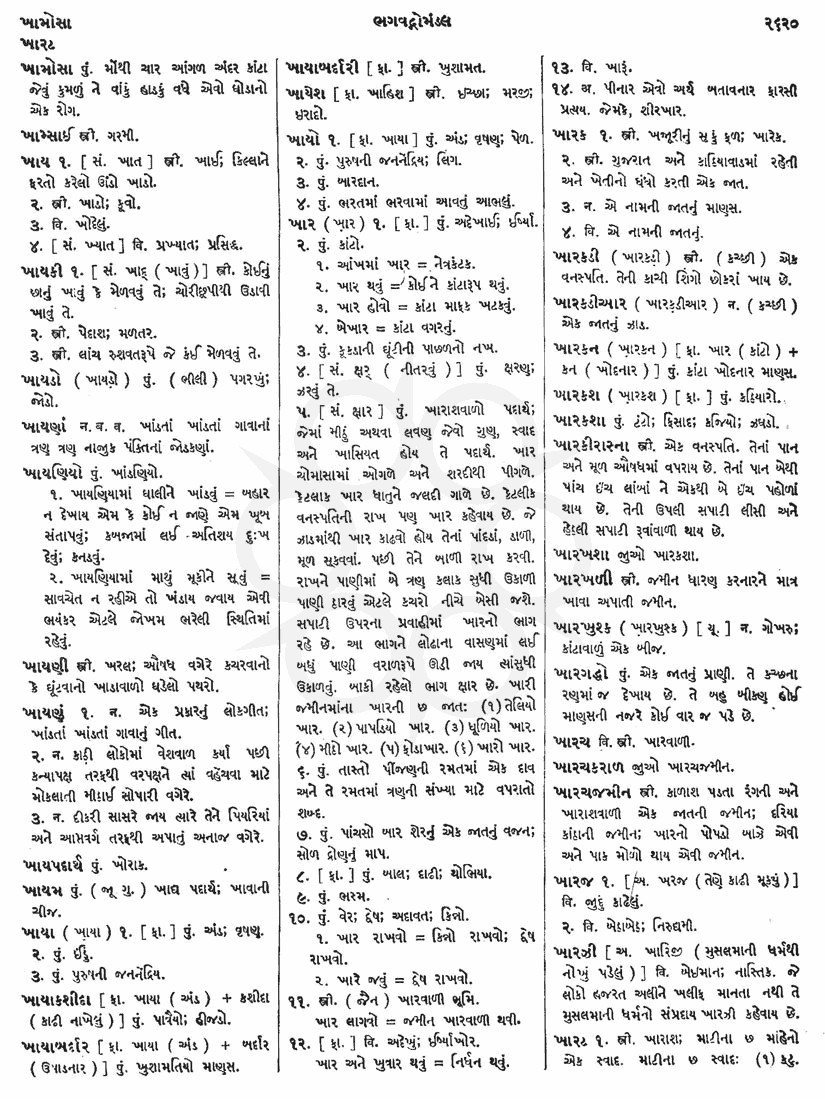 ખામોસા
ભગવદ્ગોમંડલ
૨૬૨૦
ખારટ
ખામોસા પું. મોંથી ચાર આંગળ અંદર કાંટા
જેવું કુમળું ને વાંકું હાડકું વધે એવો ઘોડાનો
એક રોગ.
ખામ્સાઈ સ્ત્રી. ગરમી.
ખાય ૧. [ સં. ખાત ] સ્ત્રી. ખાઈ; કિલ્લાને
ફરતો કરેલો ઊંડો ખાડો.
૨. સ્ત્રી. ખાડો; કૂવો.
૩. વિ. ખોદેલું.
૪. [ સં. ખ્યાત ] વિ. પ્રખ્યાત; પ્રસિદ્ધ.
ખાયકી ૧. [ સં. ખાદ્ ( ખાવું ) ] સ્ત્રી. કોઈનું
છાનું ખાવું કે મેળવવું તે; ચોરીછૂપીથી ઉડાવી
ખાવું તે.
૨. સ્ત્રી. પેદાશ; મળતર.
૩. સ્ત્રી. લાંચ રુશવતરૂપે જે કંઈ મેળવવું તે.
ખાયડો ( ખાયડો઼ ) પું. ( ભીલી ) પગરખું;
જોડો.
ખાયણાં ન. બ. વ. ખાંડતાં ખાંડતાં ગાવાનાં
ત્રણ ત્રણ નાજુક પંક્તિનાં જોડકણાં.
ખાયણિયો પું. ખાંડણિયો.
૧. ખાયણિયામાં ઘાલીને ખાંડવું = બહાર
ન દેખાય એમ કે કોઈ ન જાણે એમ ખૂબ
સંતાપવું; કબજામાં લઈ અતિશય દુઃખ
દેવું; કનડવું.
૨. ખાયણિયામાં માથું મૂકીને સૂવું =
સાવચેત ન રહીએ તો ખંડાય જવાય એવી
ભયંકર એટલે જોખમ ભરેલી સ્થિતિમાં
રહેવું.
ખાયણી સ્ત્રી. ખરલ; ઔષધ વગેરે કચરવાનો
કે ઘૂંટવાનો ખાડાવાળો ઘડેલો પથરો.
ખાયણું ૧. ન. એક પ્રકારનું લોકગીત;
ખાંડતાં ખાંડતાં ગાવાનું ગીત.
૨. ન. કાઠી લોકોમાં વેશવાળ કર્યા પછી
કન્યાપક્ષ તરફથી વરપક્ષને ત્યાં વહેંચવા માટે
મોકલાતી મીઠાઈ સોપારી વગેરે.
૩. ન. દીકરી સાસરે જાય ત્યારે તેને પિયરિયાં
અને આપ્તવર્ગ તરફથી અપાતું અનાજ વગેરે.
ખાયપદાર્થ પું. ખોરાક.
ખાયમ પું. ( જૂ. ગુ. ) ખાદ્ય પદાર્થ; ખાવાની
ચીજ.
ખાયા ( ખાયા ) ૧. [ ફા. ] પું. અંડ; વૃષણ.
૨. પું. ઈંડું.
૩. પું. પુરુષની જનનેંદ્રિય.
ખાયાકશીદા [ ફા. ખાયા ( અંડ ) + કશીદા
( કાઢી નાખેલું ) ] પું. પાવૈયો; હીજડો.
ખાયાબર્દાર [ ફા. ખાયા ( અંડ ) + બર્દાર
( ઉપાડનાર ) ] પું. ખુશામતિયો માણસ.
ખાયાબર્દારી [ ફા. ] સ્ત્રી. ખુશામત.
ખાયેશ [ ફા. ખાહિશ ] સ્ત્રી. ઇચ્છા; મરજી;
ઇરાદો.
ખાયો ૧. [ ફા. ખાયા ] પું. અંડ; વૃષણ; પેળ.
૨. પું. પુરુષની જનનેંદ્રિય; લિંગ.
૩. પું. બારદાન.
૪. પું. ભરતમાં ભરવામાં આવતું આભલું.
ખાર ( ખાર ) ૧. [ ફા. ] પું. અદેખાઈ; ઈર્ષ્યા.
૨. પું. કાંટો.
૧. આંખમાં ખાર = નેત્રકંટક.
૨. ખાર થવું = કોઈને કાંટારૂપ થવું.
૩. ખાર હોવો = કાંટા માફક ખટકવું.
૪. બેખાર = કાંટા વગરનું.
૩. પું. કૂકડાની ઘૂંટીની પાછળનો નખ.
૪. [ સં. ક્ષર્ ( નીતરવું ) ] પું. ક્ષરણ;
ઝરવું તે.
૫. [ સં. ક્ષાર ] પું. ખારાશવાળો પદાર્થ;
જેમાં મીઠું અથવા લવણ જેવો ગુણ, સ્વાદ
અને ખાસિયત હોય તે પદાર્થ. ખાર
ચોમાસામાં ઓગળે અને શરદીથી પીગળે.
કેટલાક ખાર ધાતુને જલદી ગાળે છે. કેટલીક
વનસ્પતિની રાખ પણ ખાર કહેવાય છે. જે
ઝાડમાંથી ખાર કાઢવો હોય તેનાં પાંદડાં, ડાળી,
મૂળ સૂકવવાં. પછી તેને બાળી રાખ કરવી.
રાખને પાણીમાં બે ત્રણ કલાક સુધી ઉકાળી
પાણી ઠારવું એટલે કચરો નીચે બેસી જશે.
સપાટી ઉપરના પ્રવાહીમાં ખારનો ભાગ
રહે છે. આ ભાગને લોઢાના વાસણમાં લઈ
બધું પાણી વરાળરૂપે ઊડી જાય ત્યાંસુધી
ઉકાળવું. બાકી રહેલો ભાગ ક્ષાર છે. ખારી
જમીનમાંના ખારની ૭ જાત: (૧) તેલિયો
ખાર. (૨) પાપડિયો ખાર. (૩) ધૂળિયો ખાર.
(૪) મીઠો ખાર. (૫) ફોડાખાર. (૬) ખારો ખાર.
૬. પું. તાસ્તો પીંજણની રમતમાં એક દાવ
અને તે રમતમાં ત્રણની સંખ્યા માટે વપરાતો
શબ્દ.
૭. પું. પાંચસો બાર શેરનું એક જાતનું વજન;
સોળ દ્રોણનું માપ.
૮. [ ફા. ] પું. બાલ; દાઢી; થોભિયા.
૯. પું. ભરમ.
૧૦. પું. વેર; દ્વેષ; અદાવત; કિન્નો.
૧. ખાર રાખવો = કિન્નો રાખવો; દ્વેષ
રાખવો.
૨. ખારે જવું = દ્વેષ રાખવો.
૧૧. સ્ત્રી. ( જૈન ) ખારવાળી ભૂમિ.
ખાર લાગવો = જમીન ખારવાળી થવી.
૧૨. [ ફા. ] વિ. અદેખું; ઈર્ષ્યાખોર.
ખાર અને ખુવાર થવું = નિર્ધન થવું.
૧૩. વિ. ખારું.
૧૪. અ. પીનાર એવો અર્થ બતાવનાર ફારસી
પ્રત્યય. જેમકે, શીરખાર.
ખારક ૧. સ્ત્રી. ખજૂરીનું સૂકું ફળ; ખારેક.
૨. સ્ત્રી. ગુજરાત અને કાઠિયાવાડમાં રહેતી
અને ખેતીનો ધંધો કરતી એક જાત.
૩. ન. એ નામની જાતનું માણસ.
૪. વિ. એ નામની જાતનું.
ખારકડી ( ખારકડી઼ ) સ્ત્રી. ( કચ્છી ) એક
વનસ્પતિ. તેની કાચી શિંગો છોકરાં ખાય છે.
ખારકડીઆર ( ખારકડી઼આર ) ન. ( કચ્છી )
એક જાતનું ઝાડ.
ખારકન ( ખારકન ) [ ફા. ખાર ( કાંટો ) +
કન ( ખોદનાર ) ] પું. કાંટા ખોદનાર માણસ.
ખારકશ ( ખારકશ ) [ ફા. ] પું. કઠિયારો.
ખારકશા પું. ટંટો; ફિસાદ; કજિયો; ઝઘડો.
ખારકીરાસ્ના સ્ત્રી. એક વનસ્પતિ. તેનાં પાન
અને મૂળ ઔષધમાં વપરાય છે. તેનાં પાન બેથી
પાંચ ઇંચ લાંબાં ને એકથી બે ઇંચ પહોળાં
થાય છે. તેની ઉપલી સપાટી લીસી અને
હેઠલી સપાટી રૂંવાંવાળી થાય છે.
ખારખશા જુઓ ખારકશા.
ખારખળી સ્ત્રી. જમીન ધારણ કરનારને માત્ર
ખાવા અપાતી જમીન.
ખારખુશ્ક ( ખારખુશ્ક ) [ યૂ. ] ન. ગોખરુ;
કાંટાવાળું એક બીજ.
ખારગદ્ધો પું. એક જાતનું પ્રાણી. તે કચ્છના
રણમાં જ દેખાય છે. તે બહુ બીકણ હોઈ
માણસની નજરે કોઈ વાર જ પડે છે.
ખારચ વિ. સ્ત્રી. ખારવાળી.
ખારચકરાળ જુઓ ખારચજમીન.
ખારચજમીન સ્ત્રી. કાળાશ પડતા રંગની અને
ખારાશવાળી એક જાતની જમીન; દરિયા
કાંઠાની જમીન; ખારનો પોપડો બાઝે એવી
અને પાક મોળો થાય એવી જમીન.
ખારજ ૧. [ અ. ખરજ ( તેણે કાઢી મૂક્યું ) ]
વિ. જુદું કાઢેલું.
૨. વિ. બેડાબેડ; નિરુદ્યમી.
ખારઝી [ અ. ખારિજી ( મુસલમાની ધર્મથી
નોખું પડેલું ) ] વિ. બેઈમાન; નાસ્તિક. જે
લોકો હજરત અલીને ખલીફ માનતા નથી તે
મુસલમાની ધર્મનો સંપ્રદાય ખારઝી કહેવાય છે.
ખારટ ૧. સ્ત્રી. ખારાશ; માટીના ૭ માંહેનો
એક સ્વાદ. માટીના ૭ સ્વાદ: (૧) કટુ.